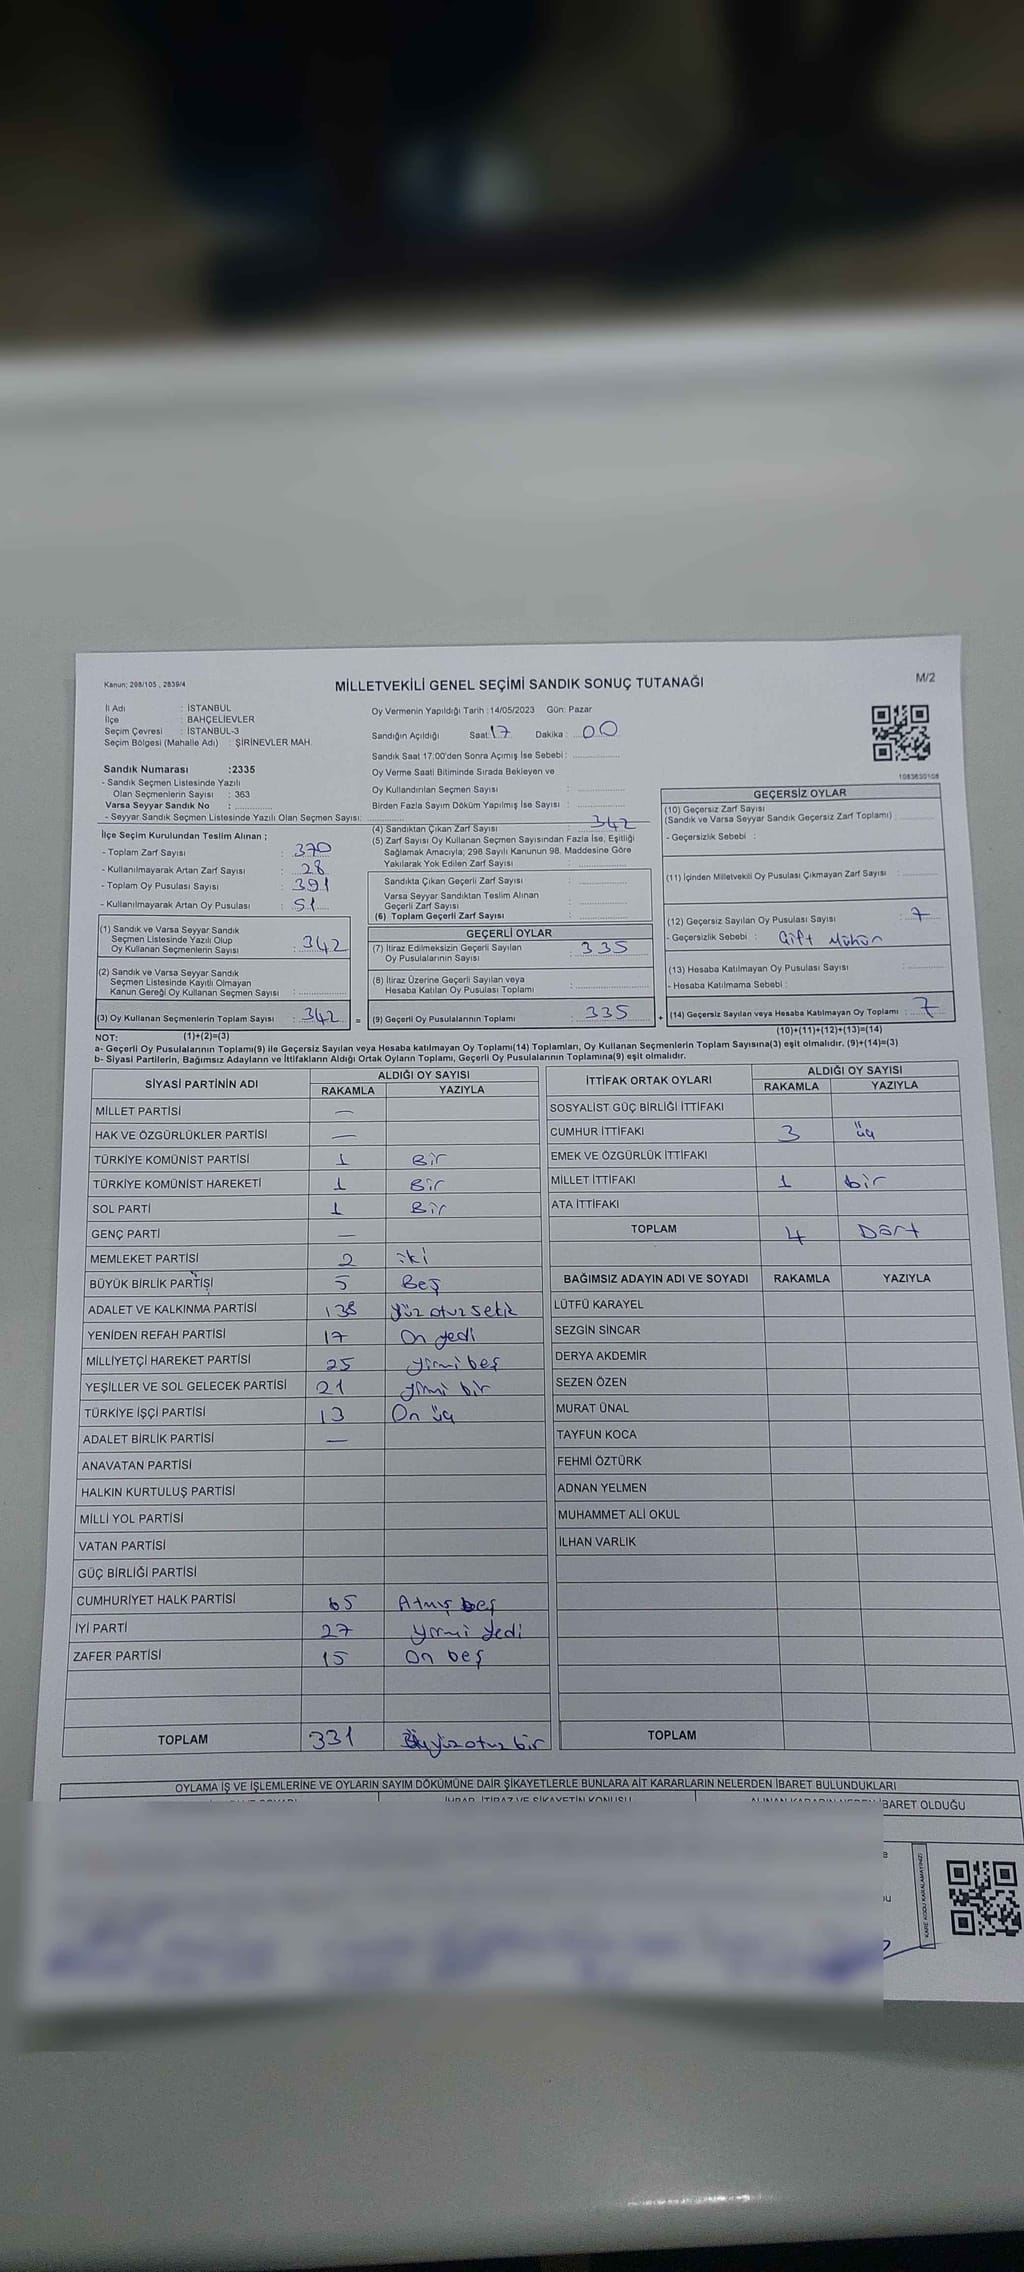 Kanun; 298/105 , 2839/4
MİLLETVEKİLİ GENEL SEÇİMİ SANDIK SONUÇ TUTANAĞI
M/2
İl Adı : İSTANBUL
İlçe : BAHÇELİEVLER
Seçim Çevresi : İSTANBUL-3
Seçim Bölgesi (Mahalle Adı) : ŞİRİNEVLER MAH.
Oy Vermenin Yapıldığı Tarih : 14/05/2023 Gün: Pazar
Sandığın Açıldığı Saat: 17 Dakika : 00
Sandık Saat 17.00'den Sonra Açımış İse Sebebi:
Oy Verme Saati Bitiminde Sırada Bekleyen ve
Oy Kullandırılan Seçmen Sayısı :
Birden Fazla Sayım Döküm Yapılmış İse Sayısı :
1083630108
Sandık Numarası :2335
- Sandık Seçmen Listesinde Yazılı
Olan Seçmenlerin Sayısı : 363
Varsa Seyyar Sandık No :
- Seyyar Sandık Seçmen Listesinde Yazılı Olan Seçmen Sayısı:
İlçe Seçim Kurulundan Teslim Alınan ;
- Toplam Zarf Sayısı : 370
- Kullanılmayarak Artan Zarf Sayısı : 28
- Toplam Oy Pusulası Sayısı : 391
- Kullanılmayarak Artan Oy Pusulası : 51
(1) Sandık ve Varsa Seyyar Sandık
Seçmen Listesinde Yazılı Olup
Oy Kullanan Seçmenlerin Sayısı : 342
(2) Sandık ve Varsa Seyyar Sandık
Seçmen Listesinde Kayıtlı Olmayan
Kanun Gereği Oy Kullanan Seçmen Sayısı :
(3) Oy Kullanan Seçmenlerin Toplam Sayısı : 342 =
(4) Sandıktan Çıkan Zarf Sayısı : 342
(5) Zarf Sayısı Oy Kullanan Seçmen Sayısından Fazla İse, Eşitliği
Sağlamak Amacıyla; 298 Sayılı Kanunun 98. Maddesine Göre
Yakılarak Yok Edilen Zarf Sayısı :
Sandıkta Çıkan Geçerli Zarf Sayısı :
Varsa Seyyar Sandıktan Teslim Alınan
Geçerli Zarf Sayısı :
(6) Toplam Geçerli Zarf Sayısı :
GEÇERLİ OYLAR
(7) İtiraz Edilmeksizin Geçerli Sayılan
Oy Pusulalarının Sayısı : 335
(8) İtiraz Üzerine Geçerli Sayılan veya
Hesaba Katılan Oy Pusulası Toplamı :
(9) Geçerli Oy Pusulalarının Toplamı : 335 +
GEÇERSİZ OYLAR
(10) Geçersiz Zarf Sayısı
(Sandık ve Varsa Seyyar Sandık Geçersiz Zarf Toplamı) :
- Geçersizlik Sebebi :
(11) İçinden Milletvekili Oy Pusulası Çıkmayan Zarf Sayısı :
(12) Geçersiz Sayılan Oy Pusulası Sayısı : 7
- Geçersizlik Sebebi : Çift Mühür
(13) Hesaba Katılmayan Oy Pusulası Sayısı :
- Hesaba Katılmama Sebebi :
(14) Geçersiz Sayılan veya Hesaba Katılmayan Oy Toplamı : 7
NOT: (1)+(2)=(3)
(10)+(11)+(12)+(13)=(14)
a- Geçerli Oy Pusulalarının Toplamı(9) ile Geçersiz Sayılan veya Hesaba katılmayan Oy Toplamı(14) Toplamları, Oy Kullanan Seçmenlerin Toplam Sayısına(3) eşit olmalıdır. (9)+(14)=(3)
b- Siyasi Partilerin, Bağımsız Adayların ve İttifakların Aldığı Ortak Oyların Toplamı, Geçerli Oy Pusulalarının Toplamına(9) eşit olmalıdır.
SİYASİ PARTİNİN ADI ALDIĞI OY SAYISI
RAKAMLA YAZIYLA
MİLLET PARTİSİ —
HAK VE ÖZGÜRLÜKLER PARTİSİ —
TÜRKİYE KOMÜNİST PARTİSİ 1 Bir
TÜRKİYE KOMÜNİST HAREKETİ 1 Bir
SOL PARTİ 1 Bir
GENÇ PARTİ —
MEMLEKET PARTİSİ 2 iki
BÜYÜK BİRLİK PARTİSİ 5 Beş
ADALET VE KALKINMA PARTİSİ 138 Yüz otuz sekiz
YENİDEN REFAH PARTİSİ 17 On yedi
MİLLİYETÇİ HAREKET PARTİSİ 25 yirmi beş
YEŞİLLER VE SOL GELECEK PARTİSİ 21 yirmi bir
TÜRKİYE İŞÇİ PARTİSİ 13 On üç
ADALET BİRLİK PARTİSİ —
ANAVATAN PARTİSİ
HALKIN KURTULUŞ PARTİSİ
MİLLİ YOL PARTİSİ
VATAN PARTİSİ
GÜÇ BİRLİĞİ PARTİSİ
CUMHURİYET HALK PARTİSİ 65 Atmış beş
İYİ PARTİ 27 Yirmi yedi
ZAFER PARTİSİ 15 On beş
TOPLAM 331 Üçyüz otuz bir
İTTİFAK ORTAK OYLARI ALDIĞI OY SAYISI
RAKAMLA YAZIYLA
SOSYALİST GÜÇ BİRLİĞİ İTTİFAKI
CUMHUR İTTİFAKI 3 üç
EMEK VE ÖZGÜRLÜK İTTİFAKI
MİLLET İTTİFAKI 1 bir
ATA İTTİFAKI
TOPLAM 4 Dört
BAĞIMSIZ ADAYIN ADI VE SOYADI RAKAMLA YAZIYLA
LÜTFÜ KARAYEL
SEZGİN SİNCAR
DERYA AKDEMİR
SEZEN ÖZEN
MURAT ÜNAL
TAYFUN KOCA
FEHMİ ÖZTÜRK
ADNAN YELMEN
MUHAMMET ALİ OKUL
İLHAN VARLIK
TOPLAM
OYLAMA İŞ VE İŞLEMLERİNE VE OYLARIN SAYIM DÖKÜMÜNE DAİR ŞİKAYETLERLE BUNLARA AİT KARARLARIN NELERDEN İBARET BULUNDUKLARI
İHBAR, İTİRAZ VE ŞİKAYETİN KONUSU
ALINAN KARARIN NEDEN İBARET OLDUĞU
KARE KODU KARALAMAYINIZ!